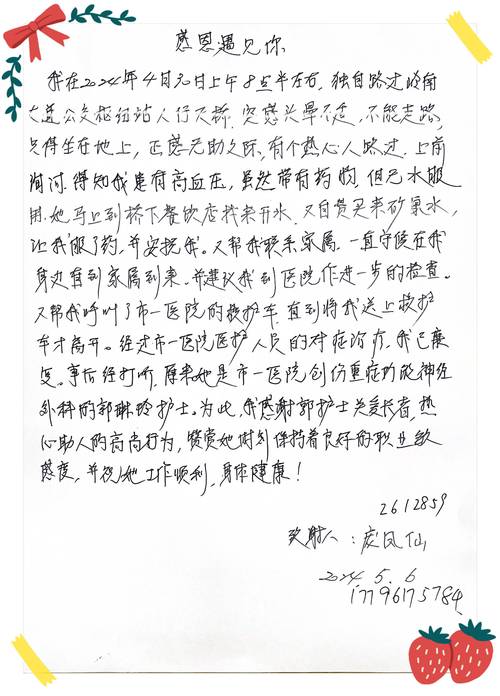 感恩遇见你
我在2024年4月元日上午8点半左右，独自路过岭南
大道公交枢纽站人行天桥，突感头晕不适，不能走路，
只得坐在地上，正感无助之际，有个热心人路过，上前
询问，得知我患有高血压，虽然带有药物，但无水服
用，她马上到桥下餐饮店找来开水，又自费买来矿泉水，
让我服了药，并安抚我。又帮我联系家属，一直守候在我
身边直到家属到来，并建议我到医院作进一步的检查。
又帮我呼叫了市一医院的救护车，直到将我送上救护
车才离开。经过市一医院医护人员的对症治疗，我已康
复。事后经打听，原来她是市一医院创伤重症功能神经
外科的郭琳玲护士。为此，我感谢郭护士关爱长者，热
心助人的高尚行为，赞赏她时刻保持着良好的职业敬
态度，并祝她工作顺利，身体健康！
2612859
致谢人：庞凤仙
2024.5.6
17796175784